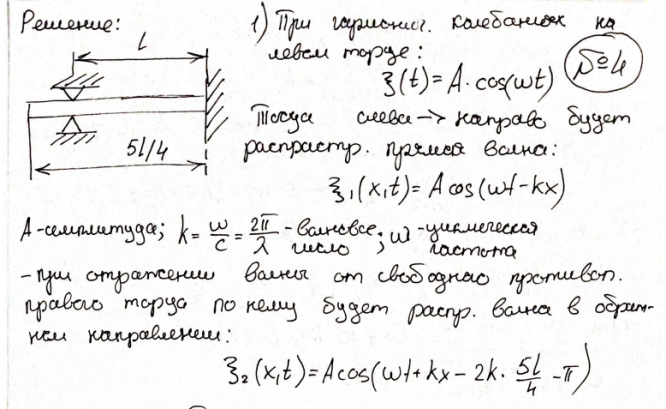 Решение:
l
5l/4
1) При гармонич. колебаниях на
левом торце:
ξ(t) = A·cos(ωt)
№4
Тогда слева → направо будет
распрастр. прямая волна:
ξ₁(x,t) = A cos(ωt - kx)
A - амплитуда; k = ω/c = 2π/λ - волновое число; ω - циклическая частота
- при отражении волны от свободного противоп.
правого торца по нему будет распр. волна в обрат-
ном направлении:
ξ₂(x,t) = A cos(ωt + kx - 2k · 5l/4 - π)